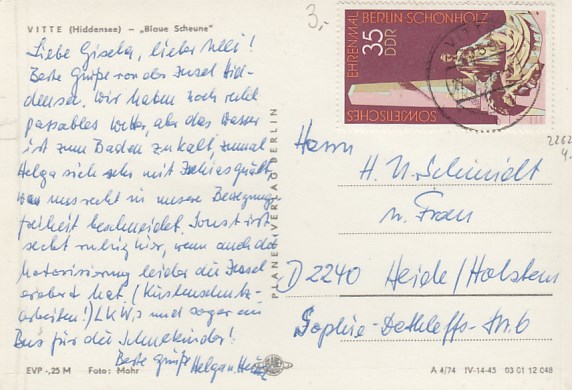 VITTE (Hiddensee) – „Blaue Scheune"
Liebe Gisela, lieber Uli!
Beste Grüße von der Insel Hid-
densee. Wir haben noch recht
passables Wetter, aber das Wasser
ist zum Baden zu kalt, zumal
Helga sich sehr mit Ischias quält
was uns recht in unsere Bewegungs-
freiheit beschneidet. Sonst ist
recht ruhig hier, wenn auch die
Motorisierung leider die Insel
erobert hat. (Küstenschutz-
arbeiten!) LKW's und sogar ein
Bus für die Schulkinder!
Beste Grüße Helga u. Heinz
EVP -,25 M Foto: Mohr
PLANET-VERLAG BERLIN
3,-
EHRENMAL BERLIN SCHÖNHOLZ
35
DDR
SOWJETISCHES
VITTE
Herrn
H. U. Schmidt
u. Frau
D 2240 Heide/Holstein
Sophie-Dethleffs-Str. 6
A 4/74 IV-14-45 03 01 12 048